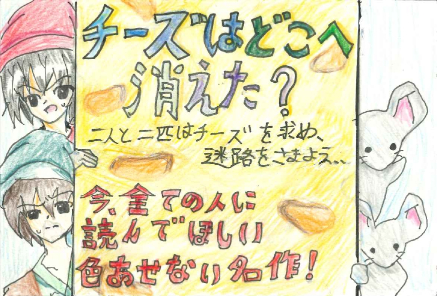 チーズはどこへ
消えた?
二人と二匹はチーズを求め、
迷路をさまよう..
今、全ての人に
読んでほしい
色あせない名作!